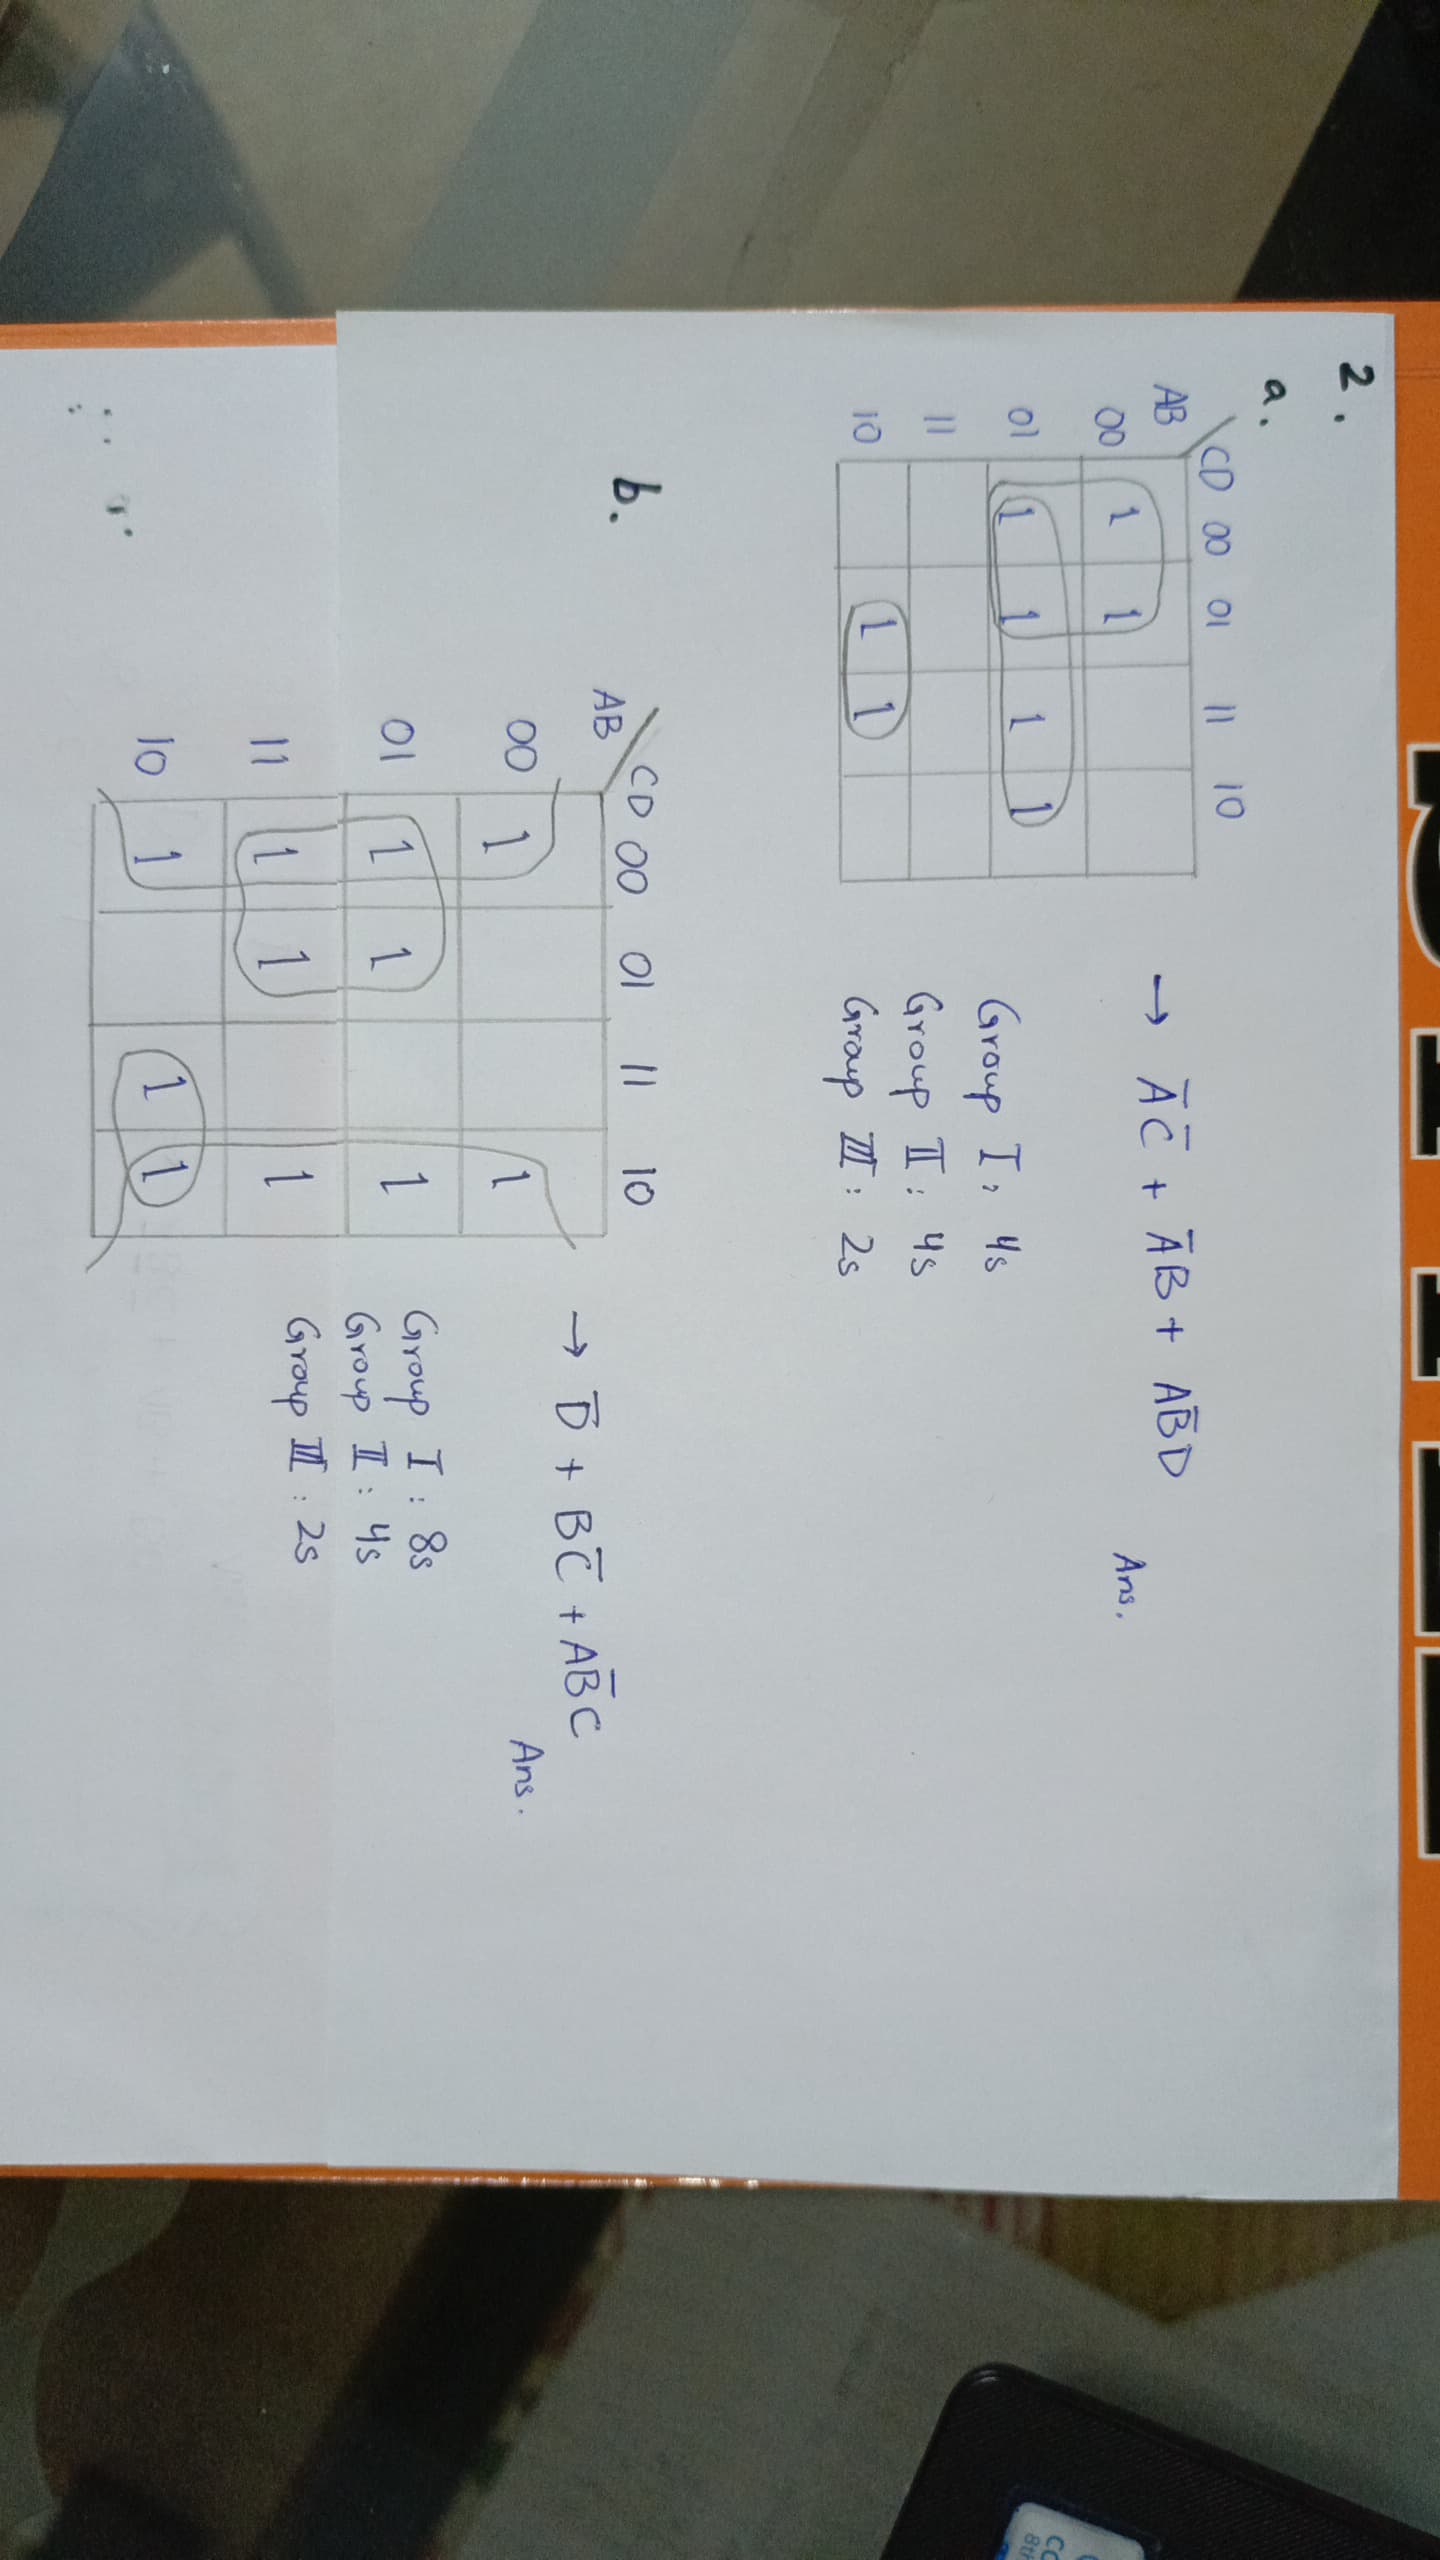 2.
a.
AB CD 00 01 11 10
00 1 1
01 1 1 1 1
11
10 1 1
→ A̅C̅ + A̅B + AB̅D
Ans.
Group I: 4s
Group II: 4s
Group III: 2s
b.
AB CD 00 01 11 10
00 1 1
01 1 1 1
11 1 1 1
10 1 1 1
→ D̅ + BC̅ + AB̅C
Ans.
Group I: 8s
Group II: 4s
Group III: 2s